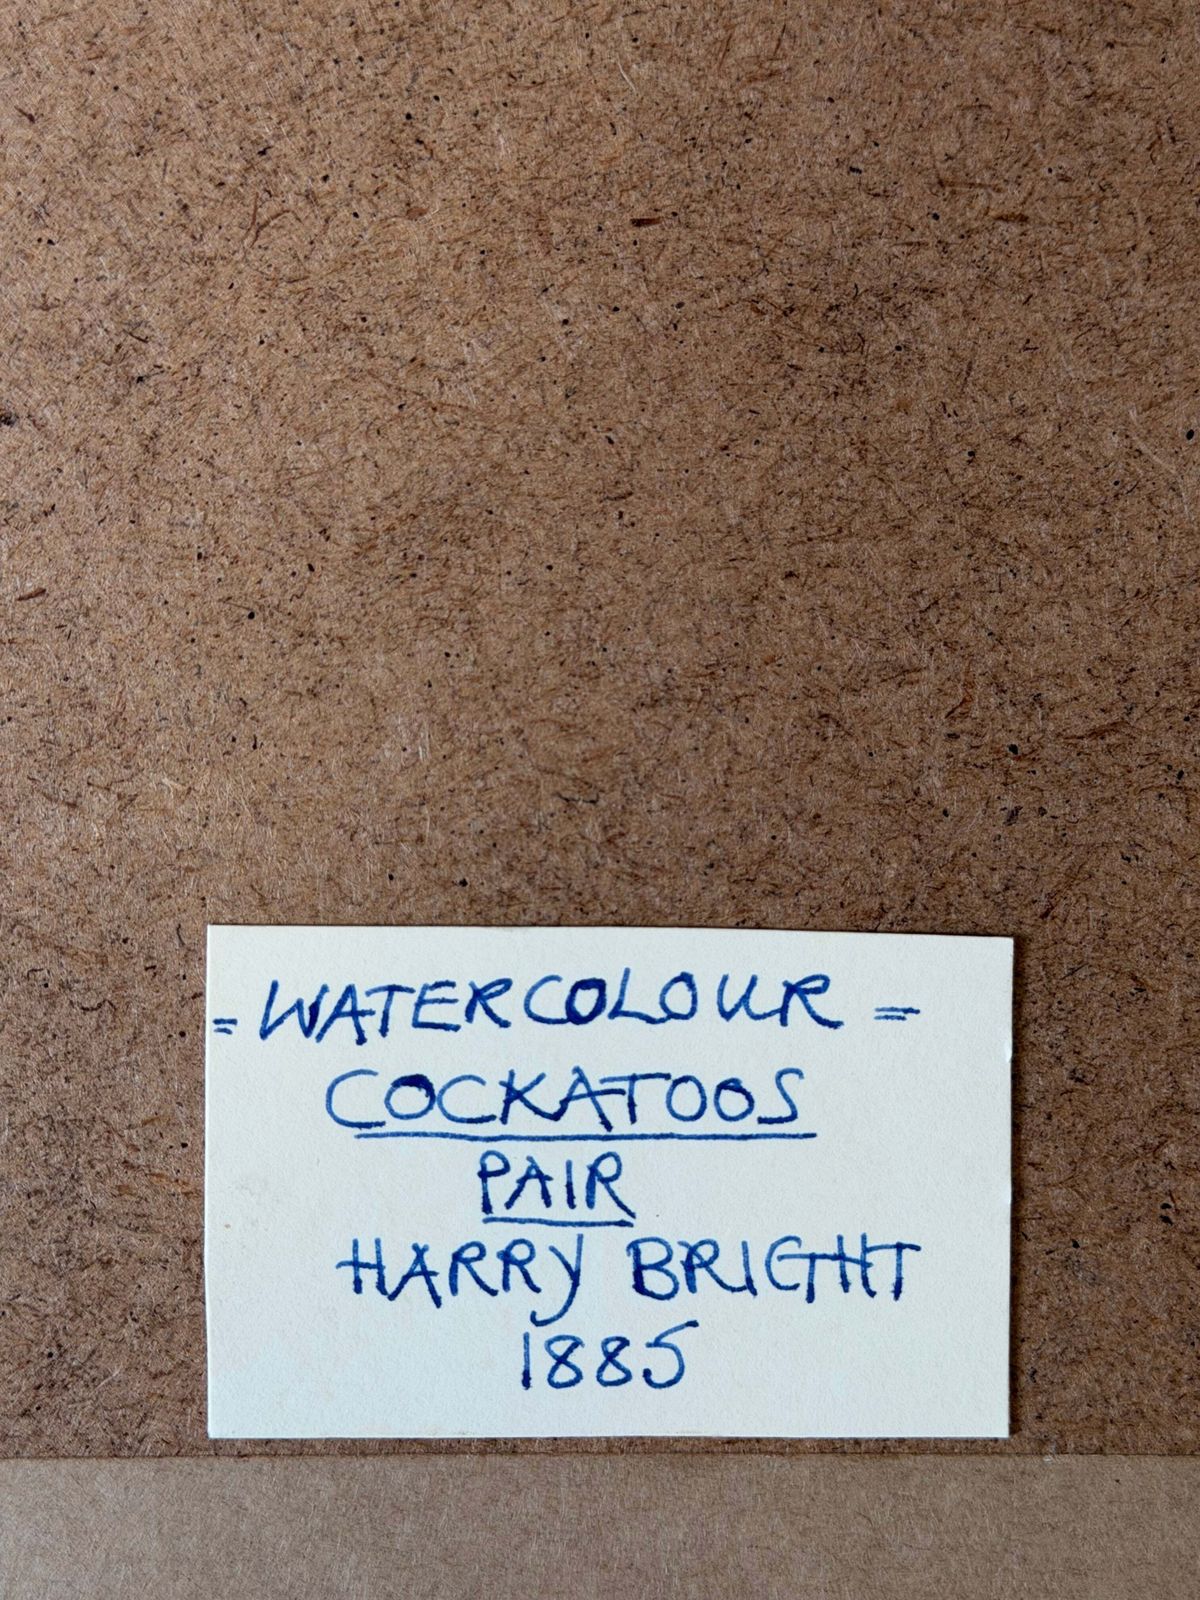 = WATERCOLOUR =
COCKATOOS
PAIR
HARRY BRIGHT
1885